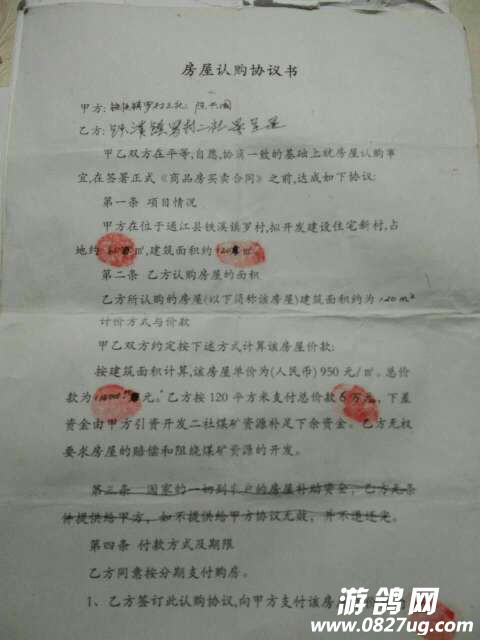 房屋认购协议书
甲方:铁溪镇罗村
乙方:铁溪镇罗村二社
甲乙双方在平等,自愿,协商一致的基础上就房屋认购事
宜,在签署正式《商品房买卖合同》之前,达成如下协议:
第一条 项目情况
甲方在位于通江县铁溪镇罗村,拟开发建设住宅新村,占
地约 ㎡,建筑面积约 ㎡.
第二条 乙方认购房屋的面积
乙方所认购的房屋(以下简称该房屋)建筑面积约为 120m²
计价方式与价款
甲乙双方约定按下述方式计算该房屋价款:
按建筑面积计算,该房屋单价为(人民币)950元/㎡。总价
款为 元。乙方按120平方米支付总价款6万元,下差
资金由甲方引资开发二社煤矿资源补足下余资金。乙方无权
要求房屋的赔偿和阻绕煤矿资源的开发。
第三条 国家的一切到 户的房屋补助资金,乙方无条
件提供给甲方,如不提供给甲方协议无效,并不退还元。
第四条 付款方式及期限
乙方同意按分期支付购房。
1、乙方签订此认购协议,向甲方支付该房
游鸽网
www.0827ug.com